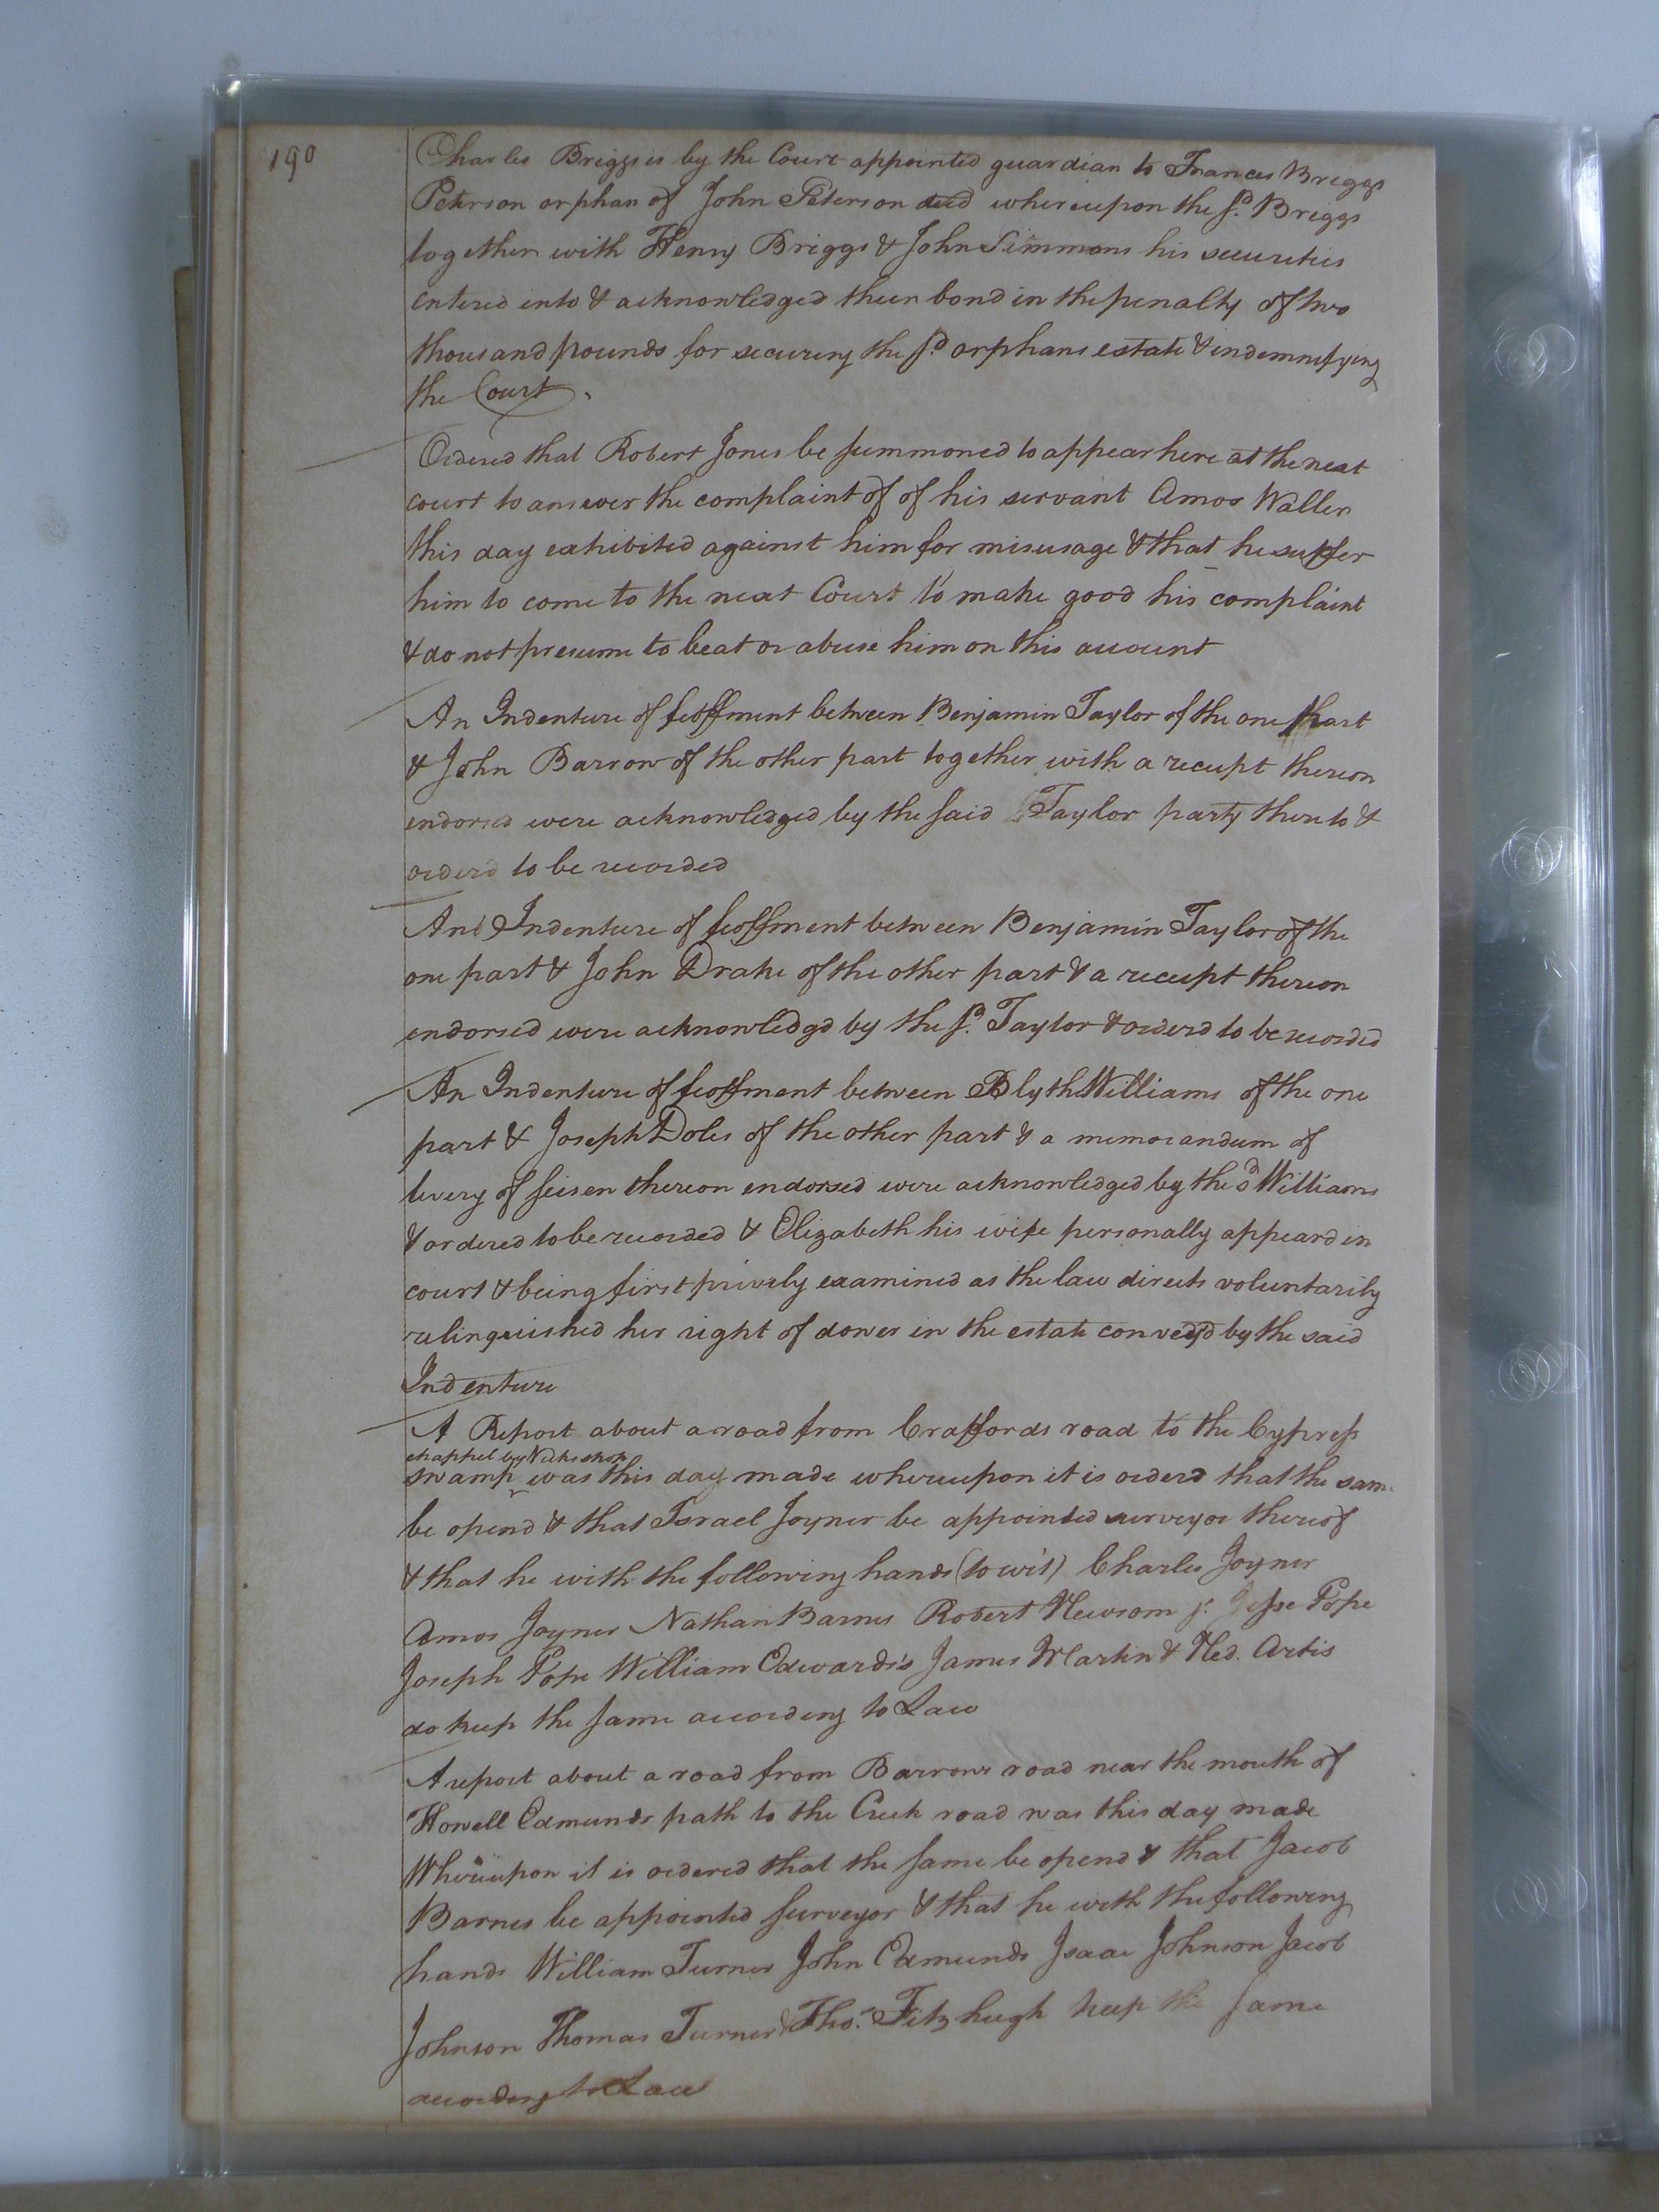 190
Charles Briggs is by the Court appointed guardian to Frances Briggs
Peterson orphan of John Peterson decd whereupon the sd. Briggs
together with Henry Briggs & John Simmons his securities
entered into & acknowledged their bond in the penalty of two
thousand pounds for securing the sd. orphans estate & indemnifying
the Court.
Ordered that Robert Jones be summoned to appear here at the next
court to answer the complaint of of his servant Amos Waller
this day exhibited against him for misusage & that he suffer
him to come to the next Court to make good his complaint
& do not presume to beat or abuse him on this account
An Indenture of feoffment between Benjamin Taylor of the one part
& John Barrow of the other part together with a receipt thereon
endorsed were acknowledged by the said Taylor party thereto &
orderd to be recorded
An Indenture of feoffment between Benjamin Taylor of the
one part & John Drake of the other part & a receipt thereon
endorsed were acknowledgd by the sd. Taylor & orderd to be recorded
An Indenture of feoffment between Blyth Williams of the one
part & Joseph Doles of the other part & a memorandum of
livery of seisen thereon endorsed were acknowledged by the sd Williams
& ordered to be recorded & Elizabeth his wife personally appeard in
court & being first privily examined as the law directs voluntarily
relinquished her right of dower in the estate conveyd by the said
Indenture
A Report about a road from Craffords road to the Cypress
chappel by
swamp was this day made whereupon it is orderd that the same
be opend & that Israel Joyner be appointed surveyor thereof
& that he with the following hands (to wit) Charles Joyner
Amos Joyner Nathan Barnes Robert Newsom jr. Jesse Pope
Joseph Pope William Edwards's James Martin & Ned. Artis
do keep the same according to Law
A report about a road from Barrows road near the mouth of
Howell Edmunds path to the Creek road was this day made
Whereupon it is ordered that the same be opend & that Jacob
Barnes be appointed surveyor & that he with the following
hands William Turner John Edmunds Isaac Johnson Jacob
Johnson Thomas Turner & Tho.s Fitzhugh keep the same
according to Law